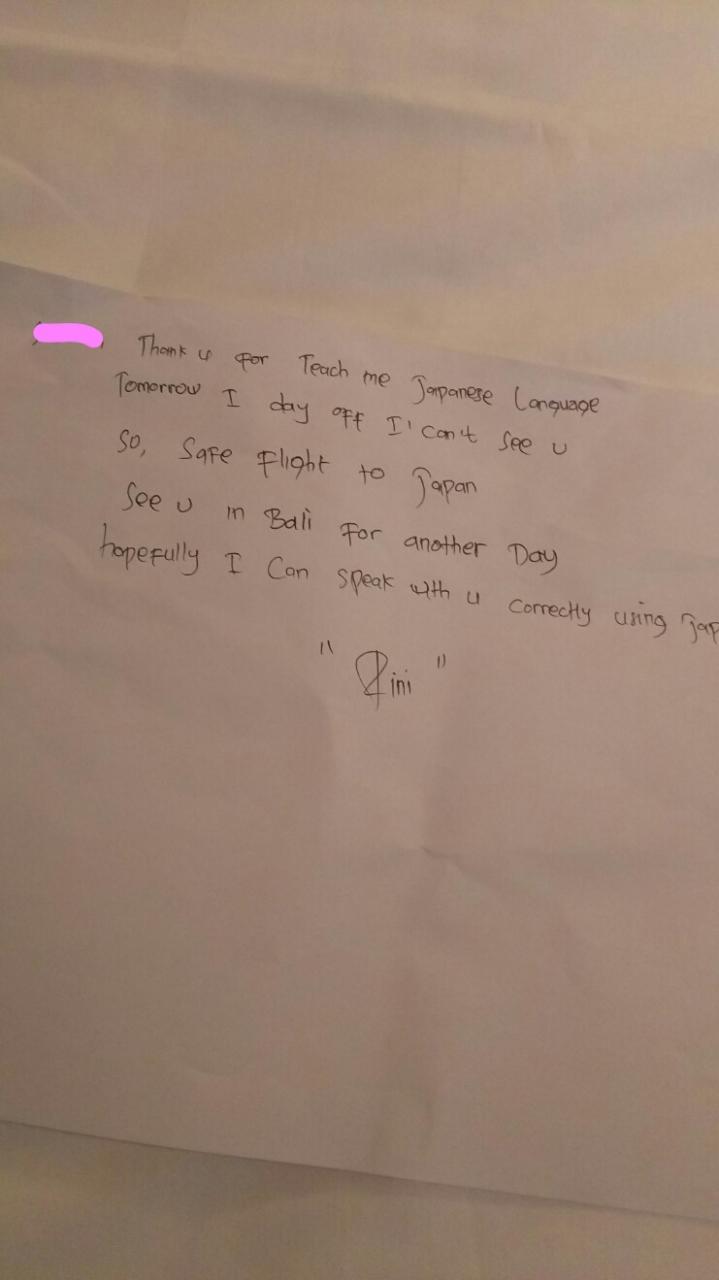 Thank u For Teach me Japanese Language
Tomorrow I day off I' can't See u
So, Safe Flight to Japan
See u in Bali For another Day
hopefully I Can speak with u correctly using Jap
" Rini "